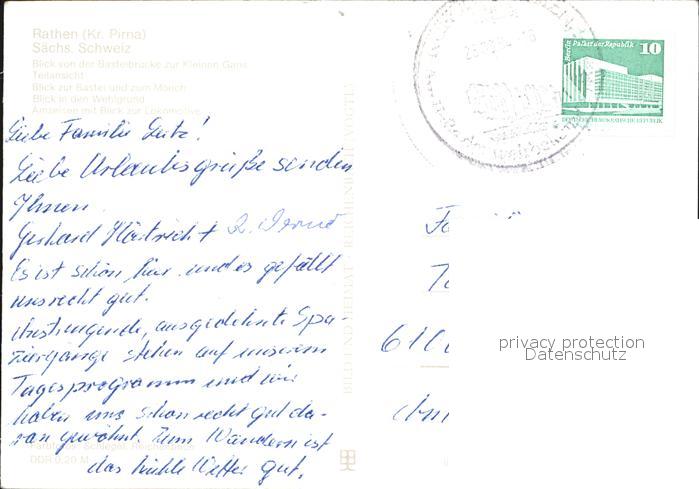 Rathen (Kr. Pirna)
Sächs. Schweiz
Blick von der Basteibrücke zur Kleinen Gans
Teilansicht
Blick zur Bastei und zum Mönch
Blick in den Wehlgrund
Amselsee mit Blick zur Lokomotive
Liebe Familie Lutz!
Liebe Urlaubsgrüße senden
Ihnen
Gerhard
Es ist schön hier und es gefällt
uns recht gut.
Anstrengende, ausgedehnte Spa-
ziergänge stehen auf unserem
Tagesprogramm und wir
haben uns schon recht gut da-
ran gewöhnt. Zum Wandern ist
das kühle Wetter gut.
DDR 0,20 M
BILD UND HEIMAT
Berlin Palast der Republik
10
DEUTSCHE DEMOKRATISCHE REPUBLIK
privacy protection
Datenschutz